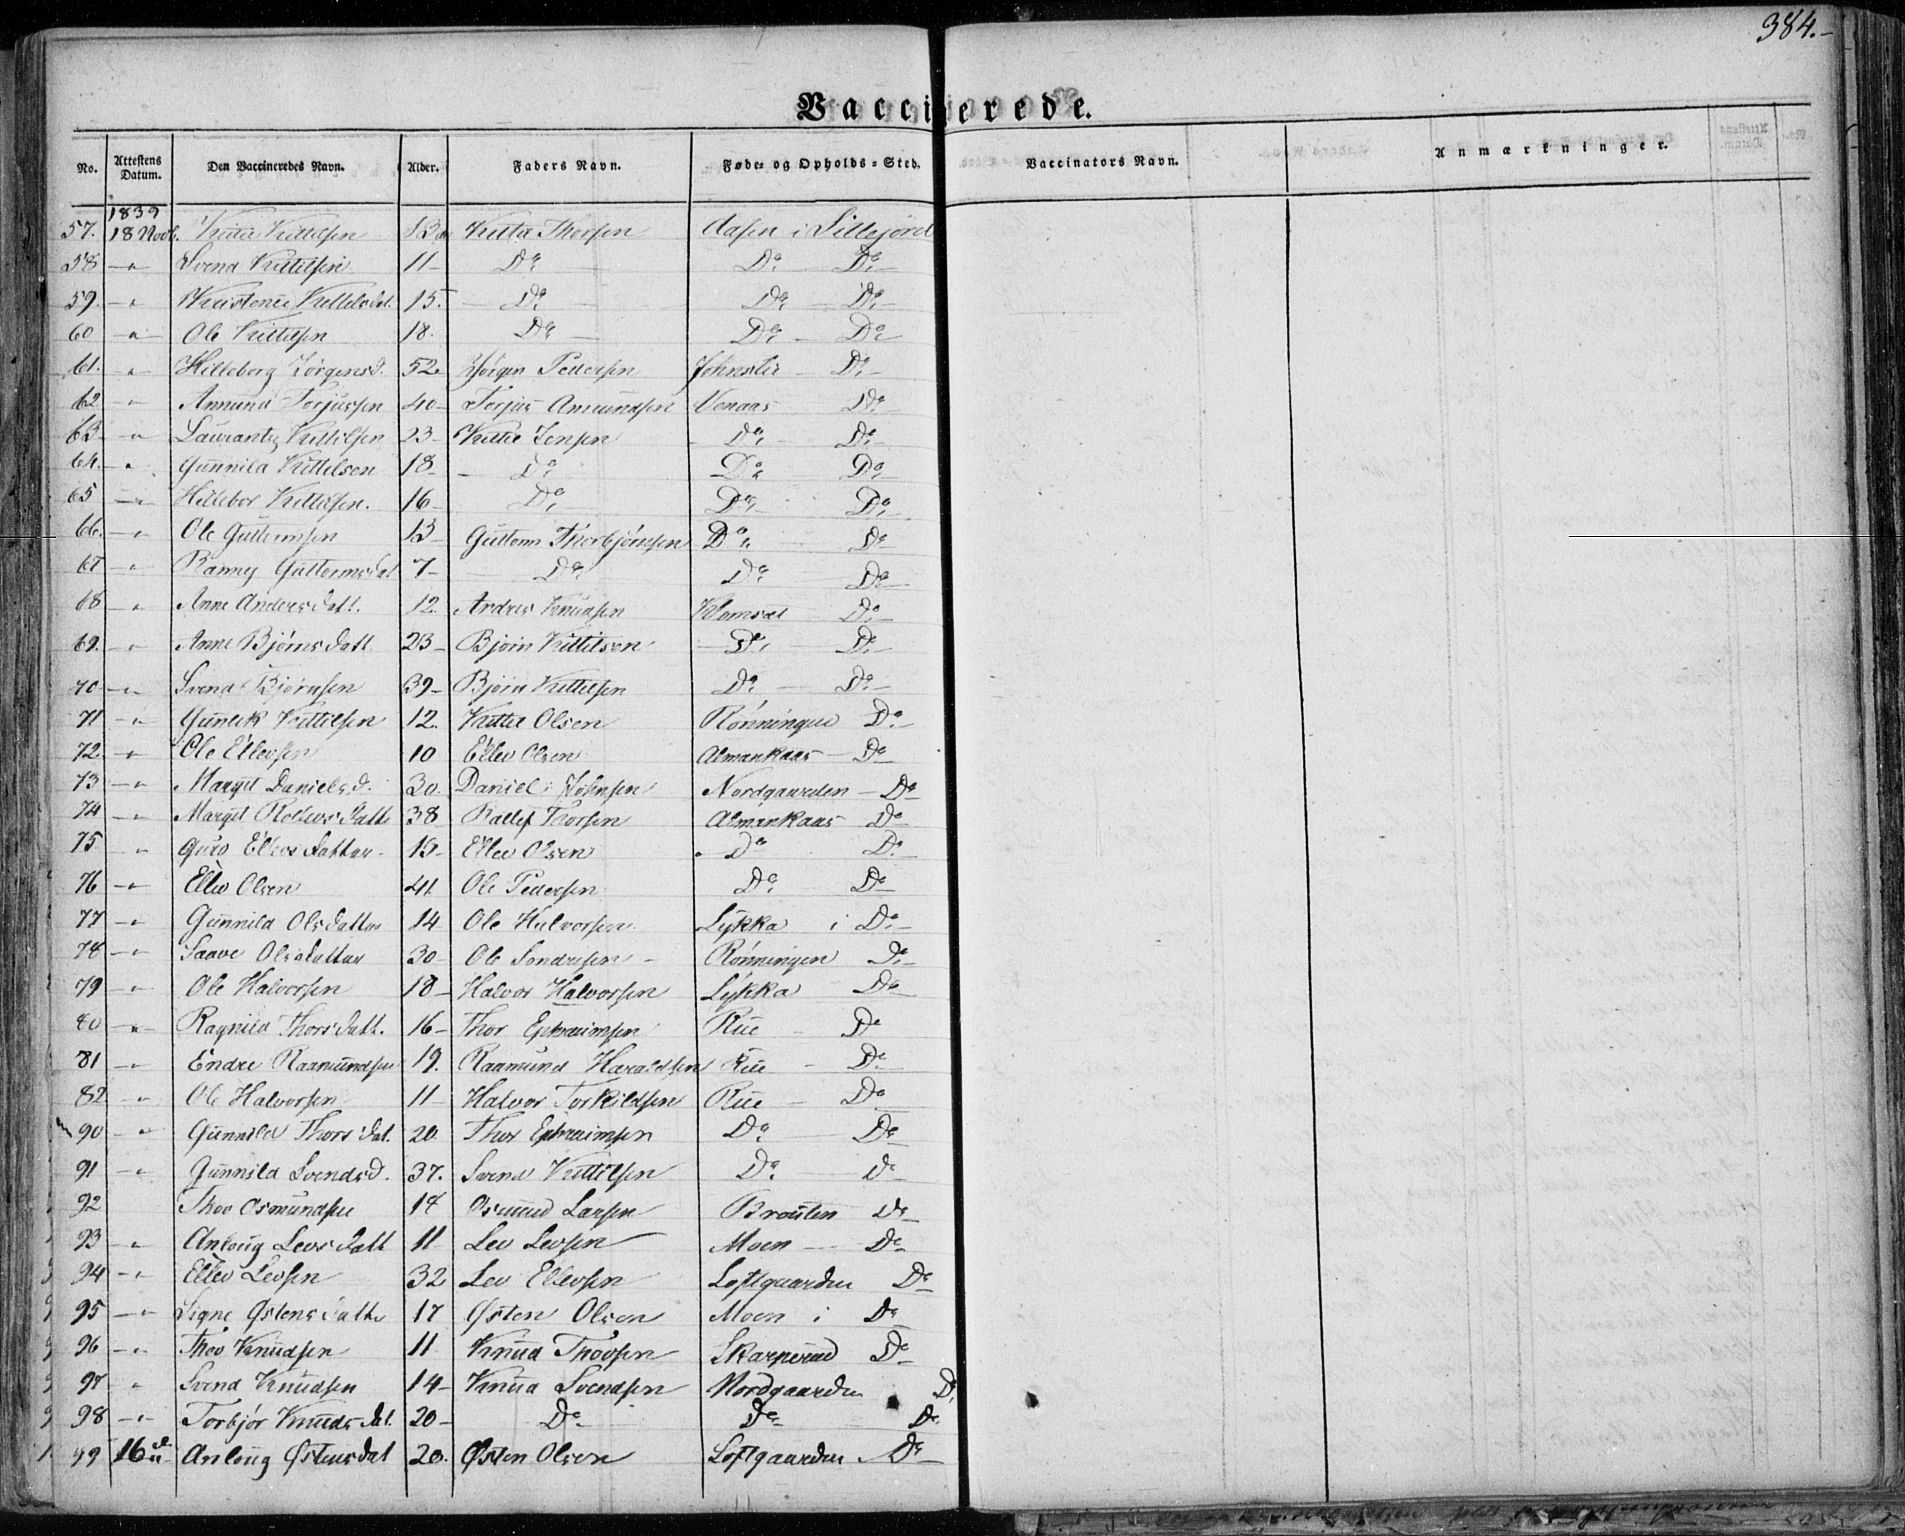 384.-
Vaccinerede.
No. Attestens Datum. Den Vaccineredes Navn. Alder. Faders Navn. Føde- og Opholds-Sted. Vaccinators Navn. Anmærkninger.
1839
57. 18 Novb. Kittil Kittilsen 13 Kittil Thorsen Aasen i Sillejord
58 -"- Svend Kittilsen 11- Do Do Do
59. -"- Kittilsdat. 15. Do Do Do
60 -"- Ole Kittilsen 18. Do Do Do
61. " Hilleborg Jørgensd. 52. Jørgen Pedersen Do
62 -"- Anmund Torjussen 40- Torjus Amundsen Venaas Do
63- -"- Kittilsen 23- Kittil Jensen Do Do
64. -" Gunnild Kittilsen 18- Do Do Do
65 -"- Hillebor Kittilsen. 16- Do Do Do
66. -"- Ole Guttormsen 13- Guttorm Thorbjørnsen Do Do
67 -"- Ranney Guttormsdat 7- Do Do Do
68 -"- Anne Andersdatt. 12. Andres Knudsen Do
69. -"- Anne Bjørnsdatt 23- Bjørn Kittilsen Do Do
70- -"- Svend Bjørnsen 39- Bjørn Kittilsen Do Do
71 -"- Gunleik Kittilsen 12. Kittil Olsen Rønningen Do
72. -"- Ole Ellevsen 10 Ellev Olsen Almankaas Do
73 -"- Margit Danielsd. 30. Daniel Johnsen Nordgaarden - Do
74 -"- Margit Rollevsdatte 38 Rollef Thorsen Almankaas Do
75 -"- Guro Ellevsdatter - 15- Ellev Olsen Do Do
76 -"- Ellev Olsen 41. Ole Pedersen Do Do
77 -"- Gunnild Olsdatter 14 Ole Halvorsen Lykka i Do
78 -"- Saave Olsdatter 30- Ole Sondresen - Rønningen Do
79 -"- Ole Halvorsen 18- Halvor Halvorsen Lykka Do
80 -"- Ragnild Thorsdatt. 16- Thor Ephraimsen Rue - Do
81 -"- Endre Raamundsen 19. Raamund Haraldsen Rue - Do
82 -"- Ole Halvorsen 11- Halvor Torkildsen Rue - Do
90 -"- Gunnild Thorsdat. 20. Thor Ephraimsen Do Do
91 -"- Gunnild Svendsd. 37. Svend Kittilsen Do Do
92 Thov Osmundsen 18 Osmund Larsen Brouten Do
93 -"- Anlaug Levsdatt 11 Lev Levsen Moen - Do
94 -"- Ellev Levsen 32 Lev Ellevsen Loftgaarden Do
95 -"- Signe Østensdatte 17 Østen Olsen Moen i Do
96 -"- Thov Knudsen 11 Knud Thovsen Skarperud Do
97 " Svend Knudsen 14- Knud Svendsen Nordgaarden Do
98 -"- Torbjør Knudsdat. 20- Do Do Do
99 16 Anlaug Østensdat 20. Østen Olsen Loftgaarden Do